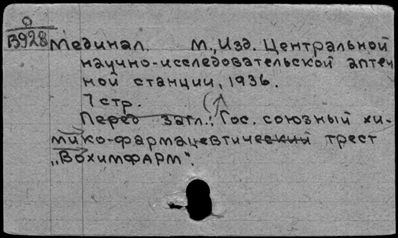 О
В928
Мединал. М., Изд. Центральной
научно-исследовательской аптеч
ной станции, 1936.
7 стр.
Перед загл.: Гос. союзный хи-
мико-фармацевтический трест
„Вохимфарм".